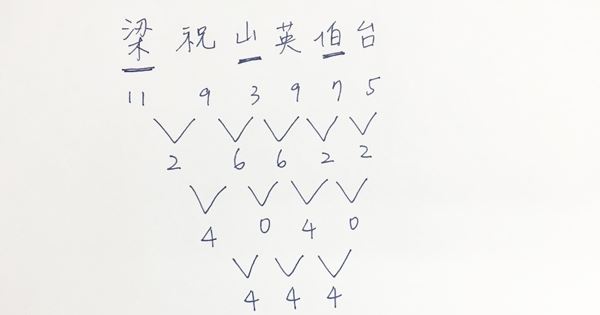 梁 祝 山 英 伯 台
11 9 3 9 7 5
2 6 6 2 2
4 0 4 0
4 4 4